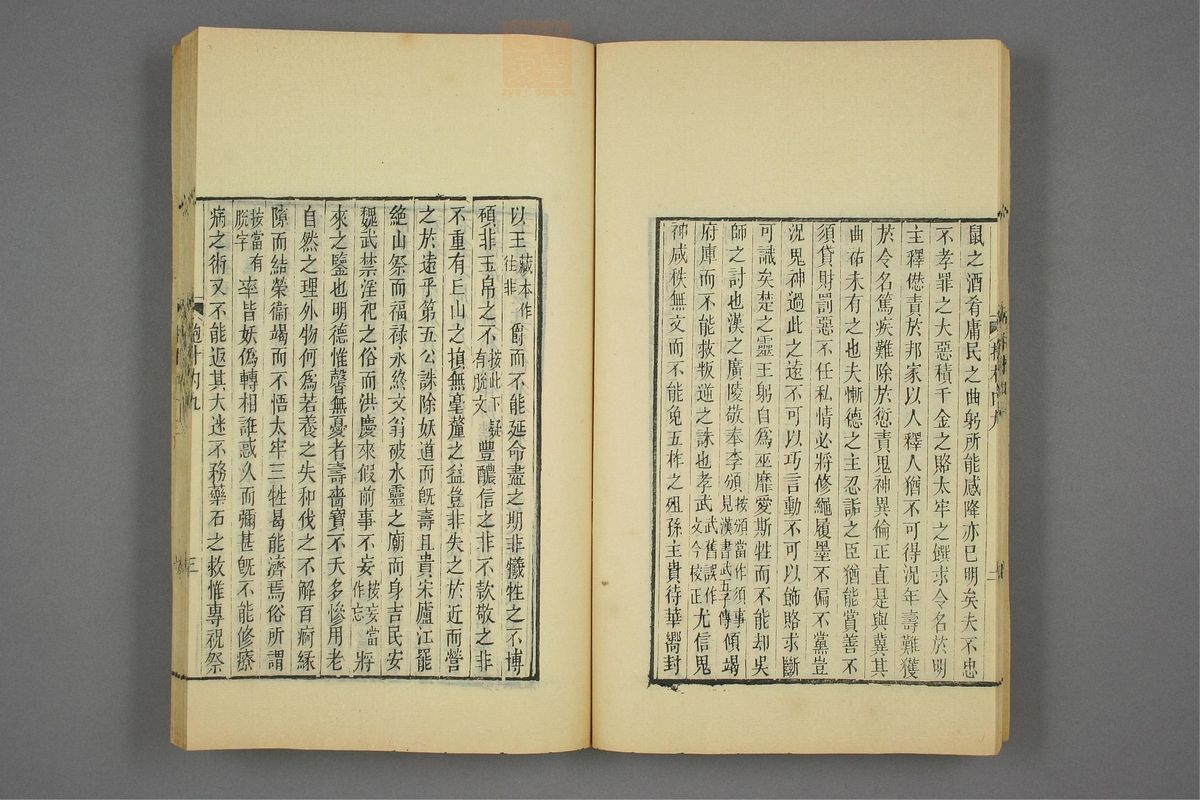 鼠之酒肴庸民之曲躬所能感降亦已明矣夫不忠
不孝罪之大惡積千金之賂太牢之饌求令名於明
主釋愆責於邦家以人釋人猶不可得況年壽難獲
於令名篤疾難除於愆責鬼神異倫正直是與冀其
曲祐未有之也夫慚德之主忍詬之臣猶能賞善不
須貸財罰惡不任私情必將修繩履墨不偏不黨豈
況鬼神過此之遠不可以巧言動不可以飾賂求斷
可識矣楚之靈王躬自爲巫靡愛斯牲而不能却吳
師之討也漢之廣陵敬奉李頒按頒當作須事見漢書武五子傳傾竭
府庫而不能救叛逆之誅也孝武武舊誤作文今校正尤信鬼
神咸秩無文而不能免五柞之殂孫主貴待華嚮封
以王藏本作往非爵而不能延命盡之期非犧牲之不博
碩非玉帛之不按此下疑有脫文豐醲信之非不款敬之非
不重有丘山之損無毫釐之益豈非失之於近而營
之於遠乎第五公誅除妖道而旣壽且貴宋廬江罷
絶山祭而福禄永終文翁破水靈之廟而身吉民安
魏武禁淫祀之俗而洪慶來假前事不妄按妄當作忘將
來之鑒也明德惟馨無憂者壽嗇寶不夭多慘用老
自然之理外物何爲若養之失和伐之不解百痾緣
隙而結榮衞竭而不悟太牢三牲曷能濟焉俗所謂
按當有脫字率皆妖僞轉相誑惑久而彌甚旣不能修療
病之術又不能返其大迷不務藥石之救惟專祝祭